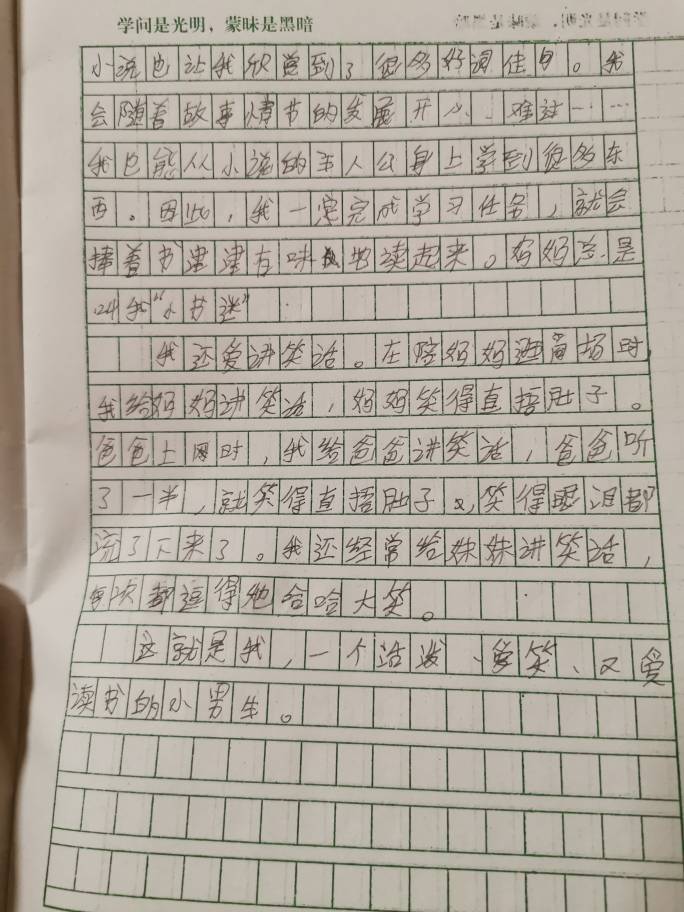 学问是光明，蒙昧是黑暗
小说也让我欣赏到了很多好词佳句。我
会随着故事情节的发展开心、难过……
我也能从小说的主人公身上学到很多东
西。因此，我一完成学习任务，就会
捧着书津津有味地读起来。妈妈总是
叫我“小书迷”
我还爱讲笑话。在陪妈妈逛商场时，
我给妈妈讲笑话，妈妈笑得直捂肚子。
爸爸上网时，我给爸爸讲笑话，爸爸听
了一半，就笑得直捂肚子，笑得眼泪都
流了下来了。我还经常给妹妹讲笑话，
每次都逗得她哈哈大笑。
这就是我，一个活泼、爱笑、又爱
读书的小男生。